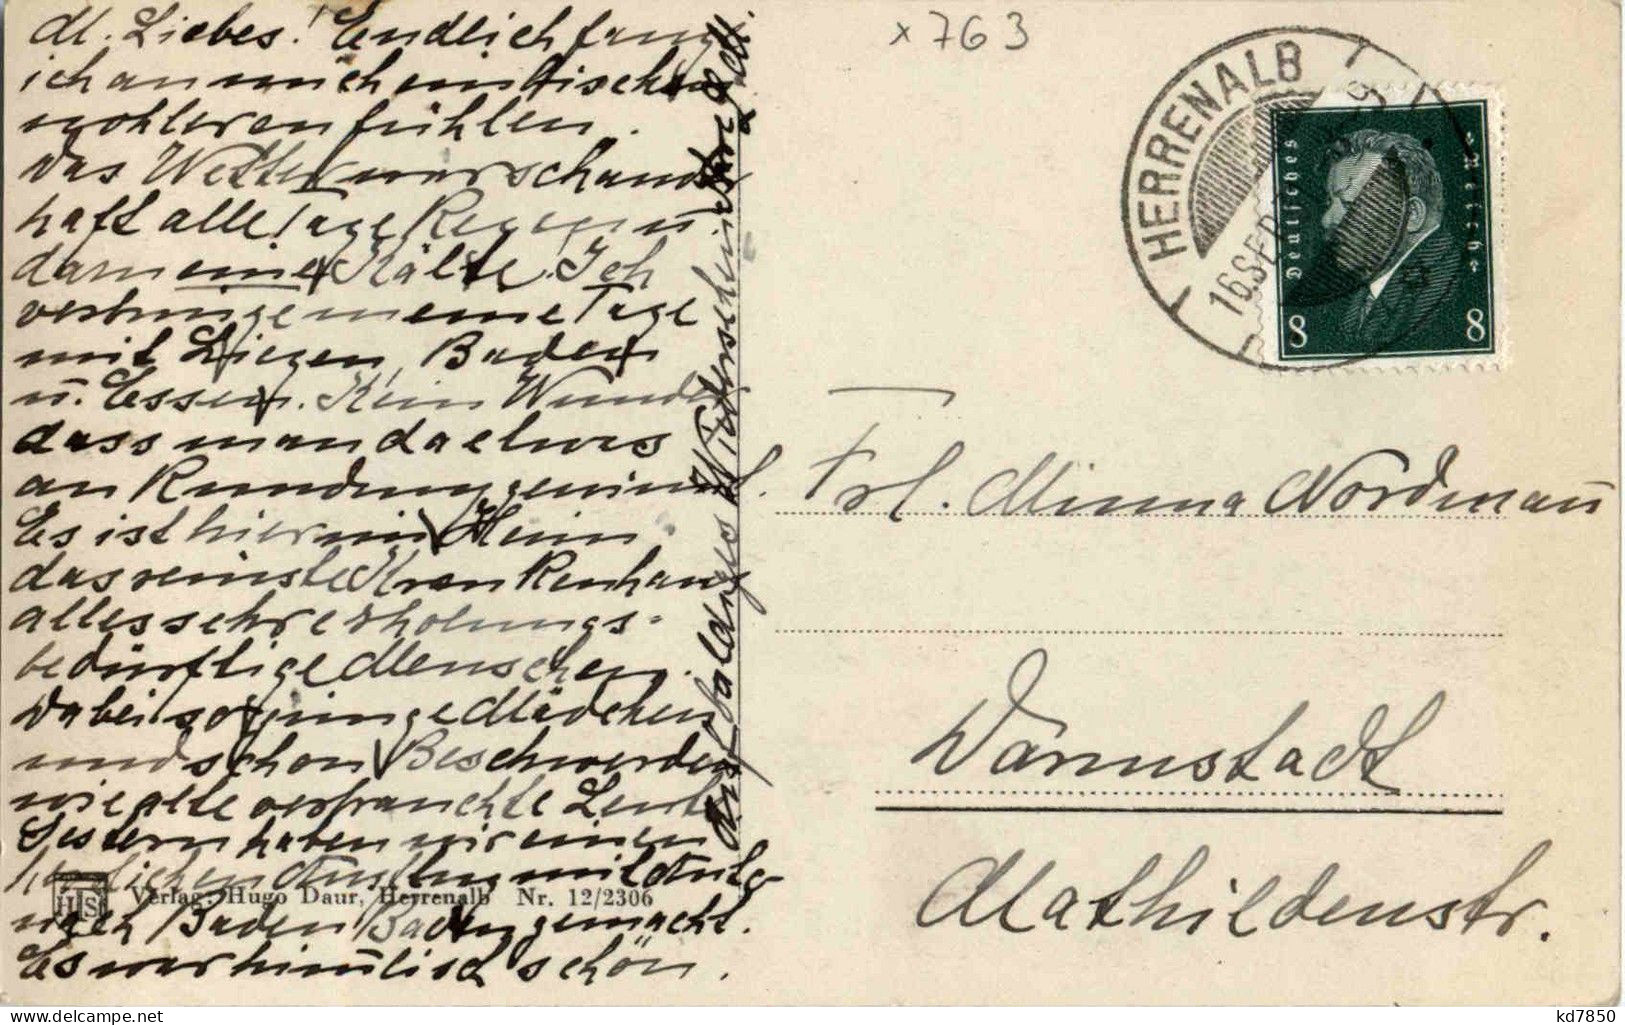 M. Liebes! Endlich fang
ich an mich ein bischen
wohler zu fühlen.
Das Wetter war schand-
haft alle Tage Regen u.
dann eine Kälte. Ich
verbringe meine Tage
mit Liegen, Baden
u. Essen. Kein Wunder
dass man da etwas
an Rundung gewinnt.
Es ist hier im Heim
das reinste Krankenhaus
alles sehr erholungs-
bedürftige Menschen.
Dabei so junge Mädchen
und schon Beschwerden
wie alte verbrauchte Leute
Gestern haben wir einen
herrlichen Ausflug mit Auto
nach Baden Baden gemacht.
Es war himmlisch schön.
Auf baldiges Wiedersehen
x 763
HERRENALB
16.SEP.
Deutsches Reich
8 8
Frl. Minna Nordmañ
Darmstadt
Mathildenstr.
HDS
Verlag: Hugo Daur, Herrenalb Nr. 12/2306
kd7850